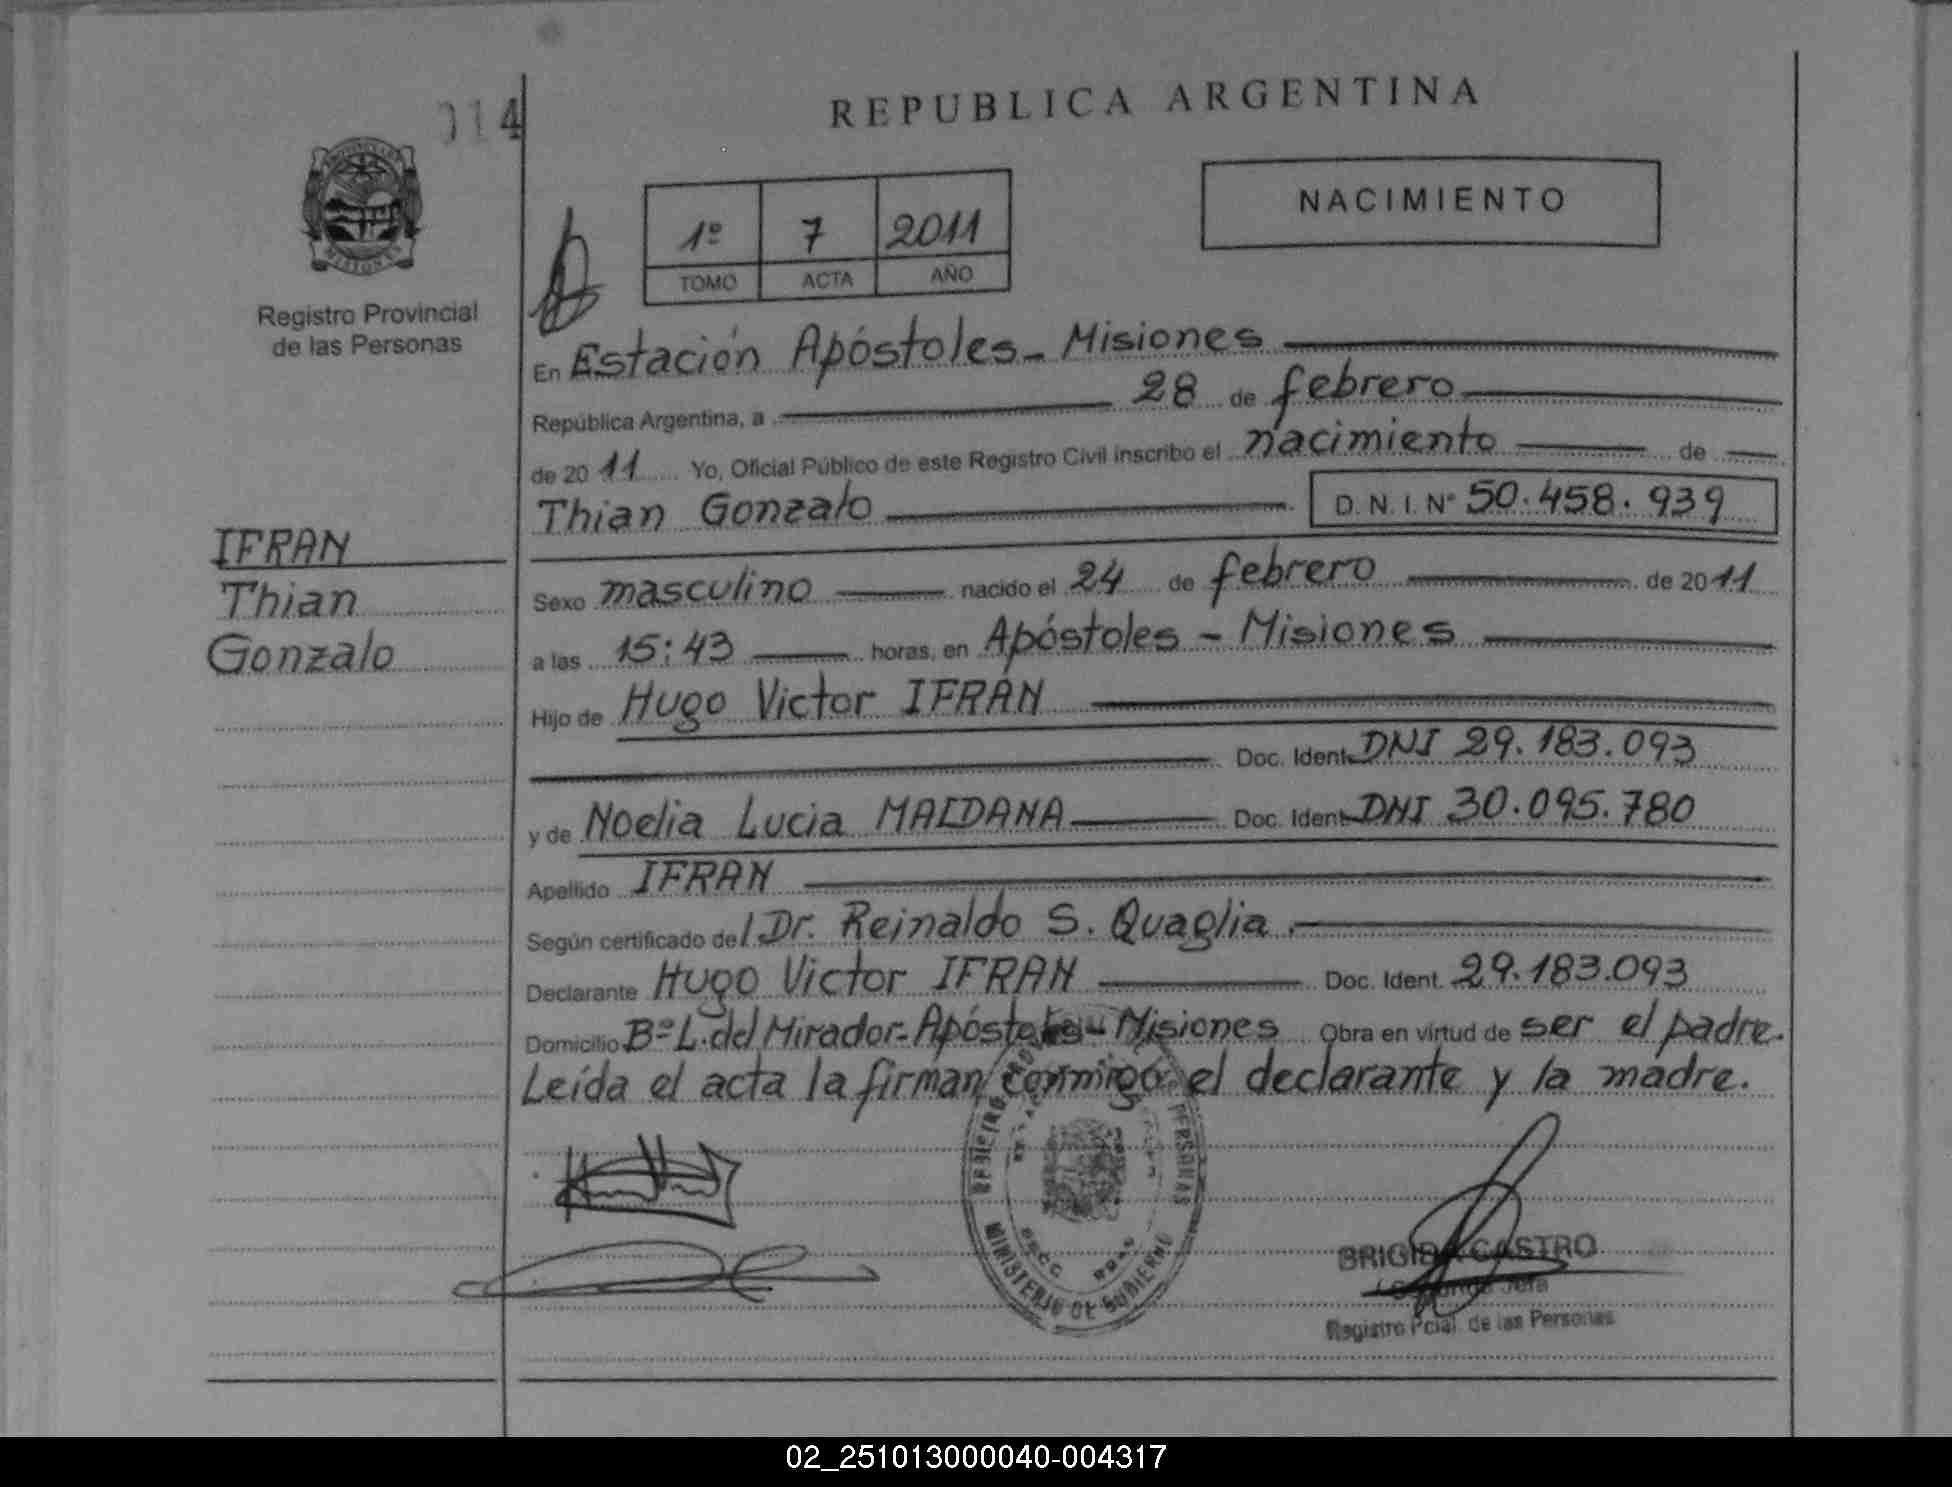 014
REPUBLICA ARGENTINA
NACIMIENTO
1º 7 2011
TOMO ACTA AÑO
Registro Provincial
de las Personas
IFRAN
Thian
Gonzalo
En Estación Apóstoles - Misiones
República Argentina, a 28 de febrero
de 2011 Yo, Oficial Público de este Registro Civil inscribo el nacimiento de
Thian Gonzalo D.N.I. Nº 50.458.939
Sexo masculino nacido el 24 de febrero de 2011
a las 15:43 horas, en Apóstoles - Misiones
Hijo de Hugo Victor IFRÁN
Doc. Ident. DNI 29.183.093
y de Noelia Lucia MALDANA Doc. Ident. DNI 30.095.780
Apellido IFRAN
Según certificado del Dr. Reinaldo S. Quaglia.
Declarante Hugo Victor IFRAN Doc. Ident. 29.183.093
Domicilio Bº L. del Mirador - Apóstoles - Misiones Obra en virtud de ser el padre.
Leída el acta la firman conmigo el declarante y la madre.
MINISTERIO DE GOBIERNO
BRIGIDA CASTRO
Jefa
Registro Pcial. de las Personas
02_251013000040-004317